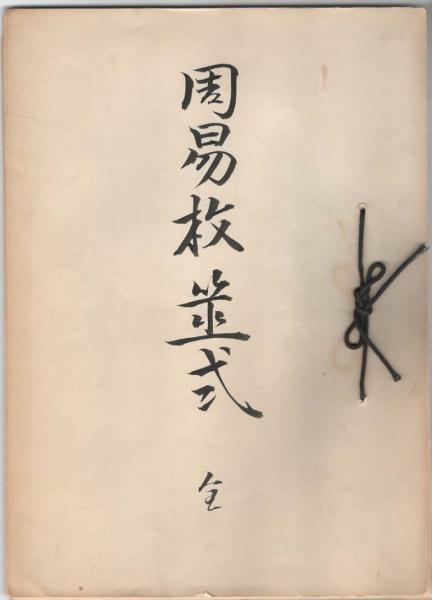 周易枚筮式 全